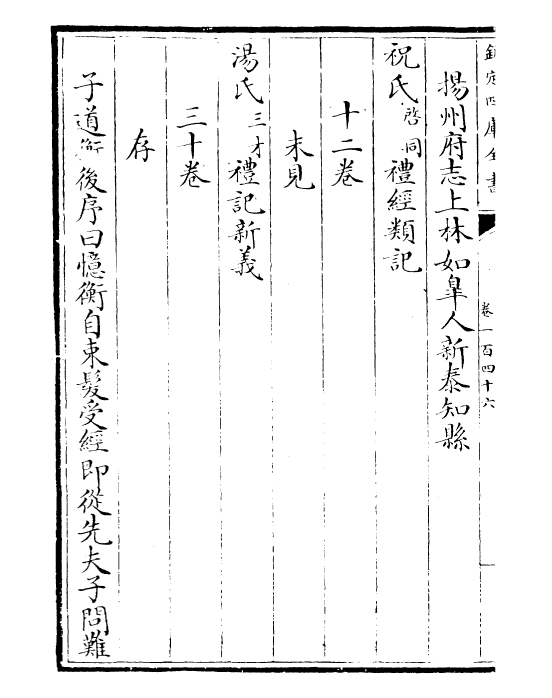 欽定四庫全書
卷一百四十六
揚州府志上林如臯人新泰知縣
祝氏啓同禮經類記
十二卷
未見
湯氏三才禮記新義
三十卷
存
子道衡後序曰憶衡自束髮受經即從先夫子問難